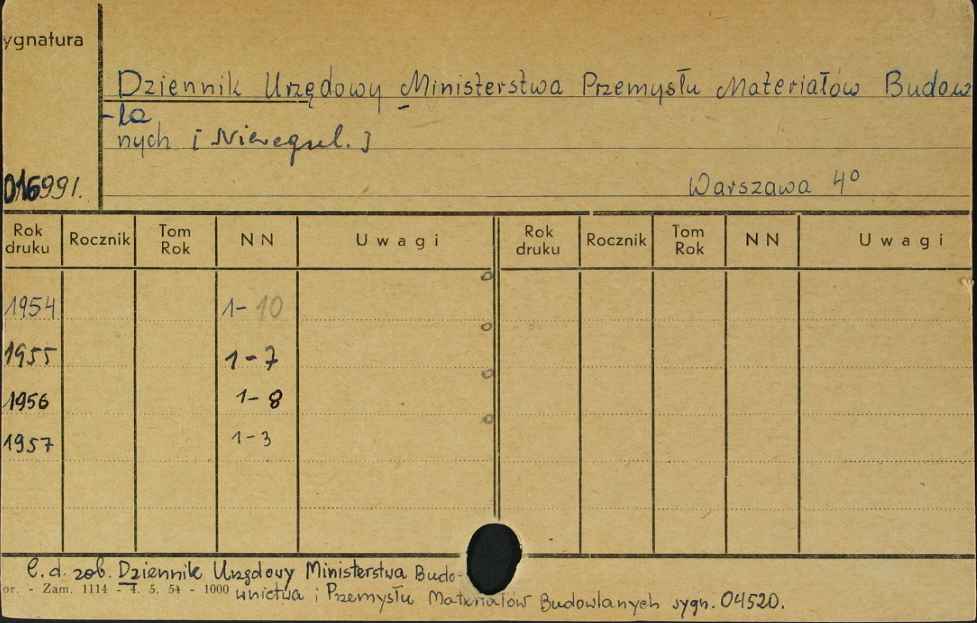 ygnatura
Dziennik Urzędowy Ministerstwa Przemysłu Materiałów Budow
-la
nych [Nieregul.]
016991.
Warszawa 4º
Rok druku Rocznik Tom Rok NN Uwagi Rok druku Rocznik Tom Rok NN Uwagi
1954 1-10
1955 1-7
1956 1-8
1957 1-3
C. d. zob. Dziennik Urzędowy Ministerstwa Budo-
or. - Zam. 1114 - 4. 5. 54 - 1000
wnictwa i Przemysłu Materiałów Budowlanych sygn. 04520.